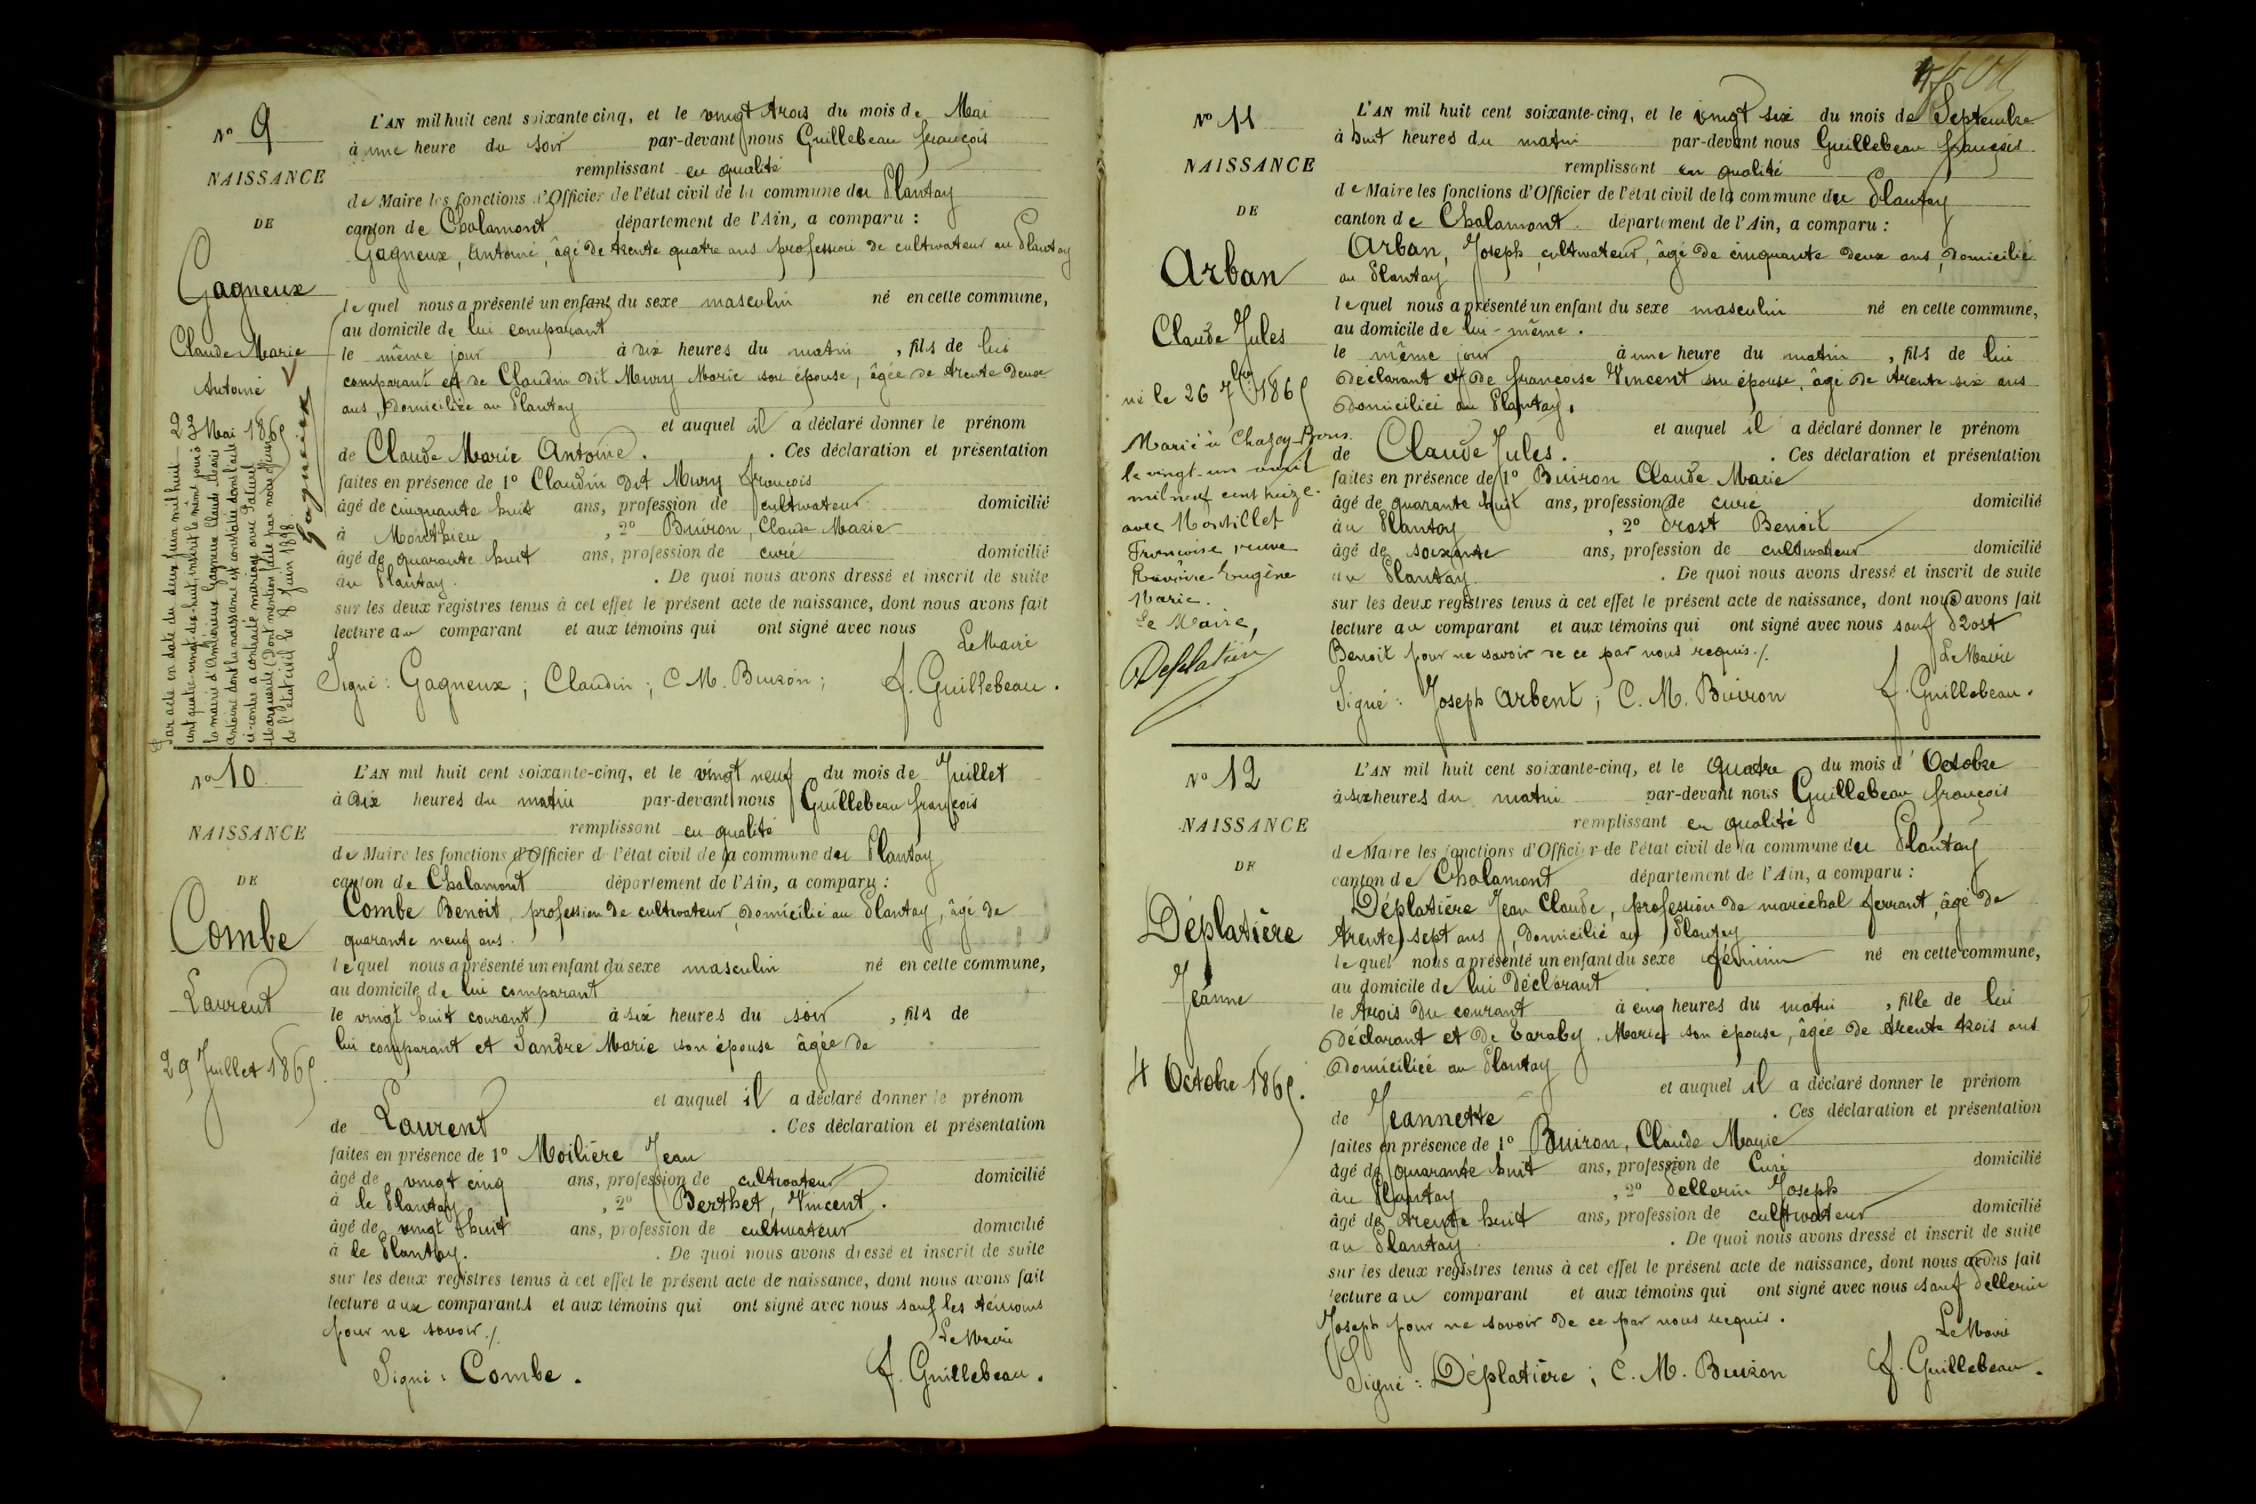 N° 9
NAISSANCE
DE
Gagneux
Claude Marie
Antoine
23 Mai 1865
Par acte en date du deux juin mil huit
cent quatre-vingt-dix-huit, inscrit le même jour à
la mairie d'Ambérieux Gagneux Claude Marie
Antoine dont la naissance est constatée dans l'acte
ci-contre a contracté mariage avec
Marguerite. Dont mention faite par nous officier
de l'état civil le 8 Juin 1898.
Gagneux
L'AN mil huit cent soixante cinq, et le vingt trois du mois de Mai
à une heure du soir par-devant nous Guillebeau françois
remplissant en qualité
de Maire les fonctions d'Officier de l'état civil de la commune du Plantay
canton de Chalamont département de l'Ain, a comparu :
Gagneux, Antoine, âgé de trente quatre ans profession de cultivateur au Plantay
lequel nous a présenté un enfant du sexe masculin né en cette commune,
au domicile de lui comparant
le même jour à dix heures du matin, fils de lui
comparant et de Claudin dit Mury Marie son épouse, âgée de trente deux
ans, domiciliée au Plantay
et auquel il a déclaré donner le prénom
de Claude Marie Antoine. . Ces déclaration et présentation
faites en présence de 1° Claudin dit Mury françois
âgé de cinquante huit ans, profession de cultivateur domicilié
à Monthieu, 2° Buiron, Claude Marie
âgé de quarante huit ans, profession de curé domicilié
au Plantay. . De quoi nous avons dressé et inscrit de suite
sur les deux registres tenus à cet effet le présent acte de naissance, dont nous avons fait
lecture au comparant et aux témoins qui ont signé avec nous
Le Maire
Signé : Gagneux ; Claudin ; C. M. Buiron ; f. Guillebeau.
N° 10
NAISSANCE
DE
Combe
Laurent
29 Juillet 1865.
L'AN mil huit cent soixante-cinq, et le vingt neuf du mois de Juillet
à dix heures du matin par-devant nous Guillebeau françois
remplissant en qualité
de Maire les fonctions d'Officier de l'état civil de la commune du Plantay
canton de Chalamont département de l'Ain, a comparu :
Combe Benoit, profession de cultivateur, domicilié au Plantay, âgé de
quarante neuf ans.
lequel nous a présenté un enfant du sexe masculin né en cette commune,
au domicile de lui comparant
le vingt huit courant à six heures du soir, fils de
lui comparant et Sandre Marie son épouse âgée de
et auquel il a déclaré donner le prénom
de Laurent . Ces déclaration et présentation
faites en présence de 1° Moilière Jean
âgé de vingt cinq ans, profession de cultivateur domicilié
à le Plantay, 2° Berthet, Vincent.
âgé de vingt huit ans, profession de cultivateur domicilié
à le Plantay. . De quoi nous avons dressé et inscrit de suite
sur les deux registres tenus à cet effet le présent acte de naissance, dont nous avons fait
lecture aux comparants et aux témoins qui ont signé avec nous sauf les témoins
pour ne savoir./.
Le Maire
Signé : Combe. f. Guillebeau.
N° 11
NAISSANCE
DE
Arban
Claude Jules
né le 26 7bre 1865
Marié à Chazey-Bons
le vingt-un avril
mil neuf cent treize
avec Montillet
Françoise veuve
Eugène
Marie.
Le Maire,
Déplatière
L'AN mil huit cent soixante-cinq, et le vingt six du mois de Septembre
à huit heures du matin par-devant nous Guillebeau françois
remplissant en qualité
de Maire les fonctions d'Officier de l'état civil de la commune du Plantay
canton de Chalamont département de l'Ain, a comparu :
Arban, Joseph, cultivateur, âgé de cinquante deux ans, domicilié
au Plantay
lequel nous a présenté un enfant du sexe masculin né en cette commune,
au domicile de lui-même.
le même jour à une heure du matin, fils de lui
déclarant et de françoise Vincent son épouse, âgé de trente six ans
domicilié au Plantay.
et auquel il a déclaré donner le prénom
de Claude Jules. . Ces déclaration et présentation
faites en présence de 1° Buiron Claude Marie
âgé de quarante huit ans, profession de curé domicilié
au Plantay, 2° Drost Benoit
âgé de soixante ans, profession de cultivateur domicilié
au Plantay. . De quoi nous avons dressé et inscrit de suite
sur les deux registres tenus à cet effet le présent acte de naissance, dont nous avons fait
lecture au comparant et aux témoins qui ont signé avec nous sauf Drost
Benoit pour ne savoir de ce par nous requis./.
Le Maire
Signé : Joseph Arbent ; C. M. Buiron f. Guillebeau.
N° 12
NAISSANCE
DE
Déplatière
Jeanne
4 Octobre 1865.
L'AN mil huit cent soixante-cinq, et le quatre du mois d'Octobre
à six heures du matin par-devant nous Guillebeau françois
remplissant en qualité
de Maire les fonctions d'Officier de l'état civil de la commune du Plantay
canton de Chalamont département de l'Ain, a comparu :
Déplatière Jean Claude, profession de maréchal ferrant, âgé de
trente sept ans, domicilié au Plantay
lequel nous a présenté un enfant du sexe féminin né en cette commune,
au domicile de lui déclarant
le trois du courant à cinq heures du matin, fille de lui
déclarant et de Taraby Marie son épouse, âgée de trente trois ans
domiciliée au Plantay
et auquel il a déclaré donner le prénom
de Jeannette . Ces déclaration et présentation
faites en présence de 1° Buiron, Claude Marie
âgé de quarante huit ans, profession de Curé domicilié
au Plantay, 2° Dellerin Joseph
âgé de trente huit ans, profession de cultivateur domicilié
au Plantay. . De quoi nous avons dressé et inscrit de suite
sur les deux registres tenus à cet effet le présent acte de naissance, dont nous avons fait
lecture au comparant et aux témoins qui ont signé avec nous sauf Dellerin
Joseph pour ne savoir de ce par nous requis.
Le Maire
Signé : Déplatière ; C. M. Buiron f. Guillebeau.